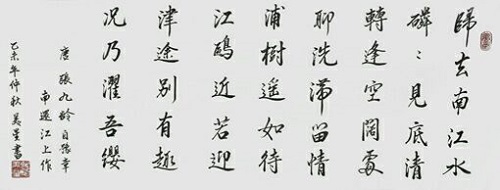 歸去南江水
磷々見底清
轉逢空闊處
聊洗滯留情
浦樹遙如待
江鷗近若迎
津途別有趣
況乃濯吾纓
唐張九齡自豫章
南還江上作
乙未年仲秋書